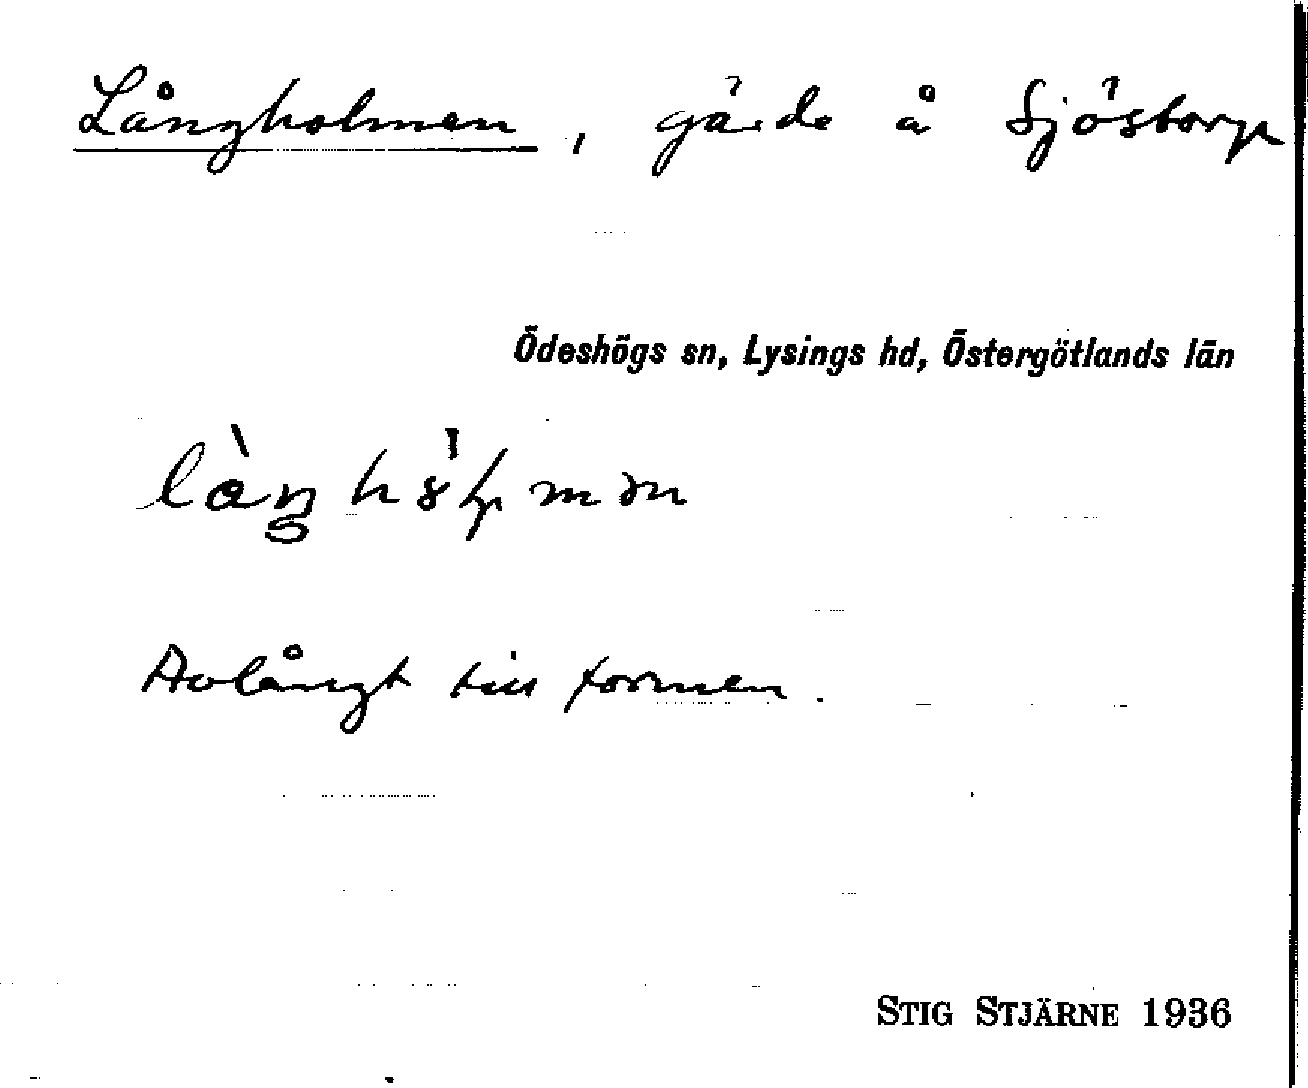 Långholmen, gärde å Sjöstorp
Ödeshögs sn, Lysings hd, Östergötlands län
Avlångt till formen.
STIG STJÄRNE 1936